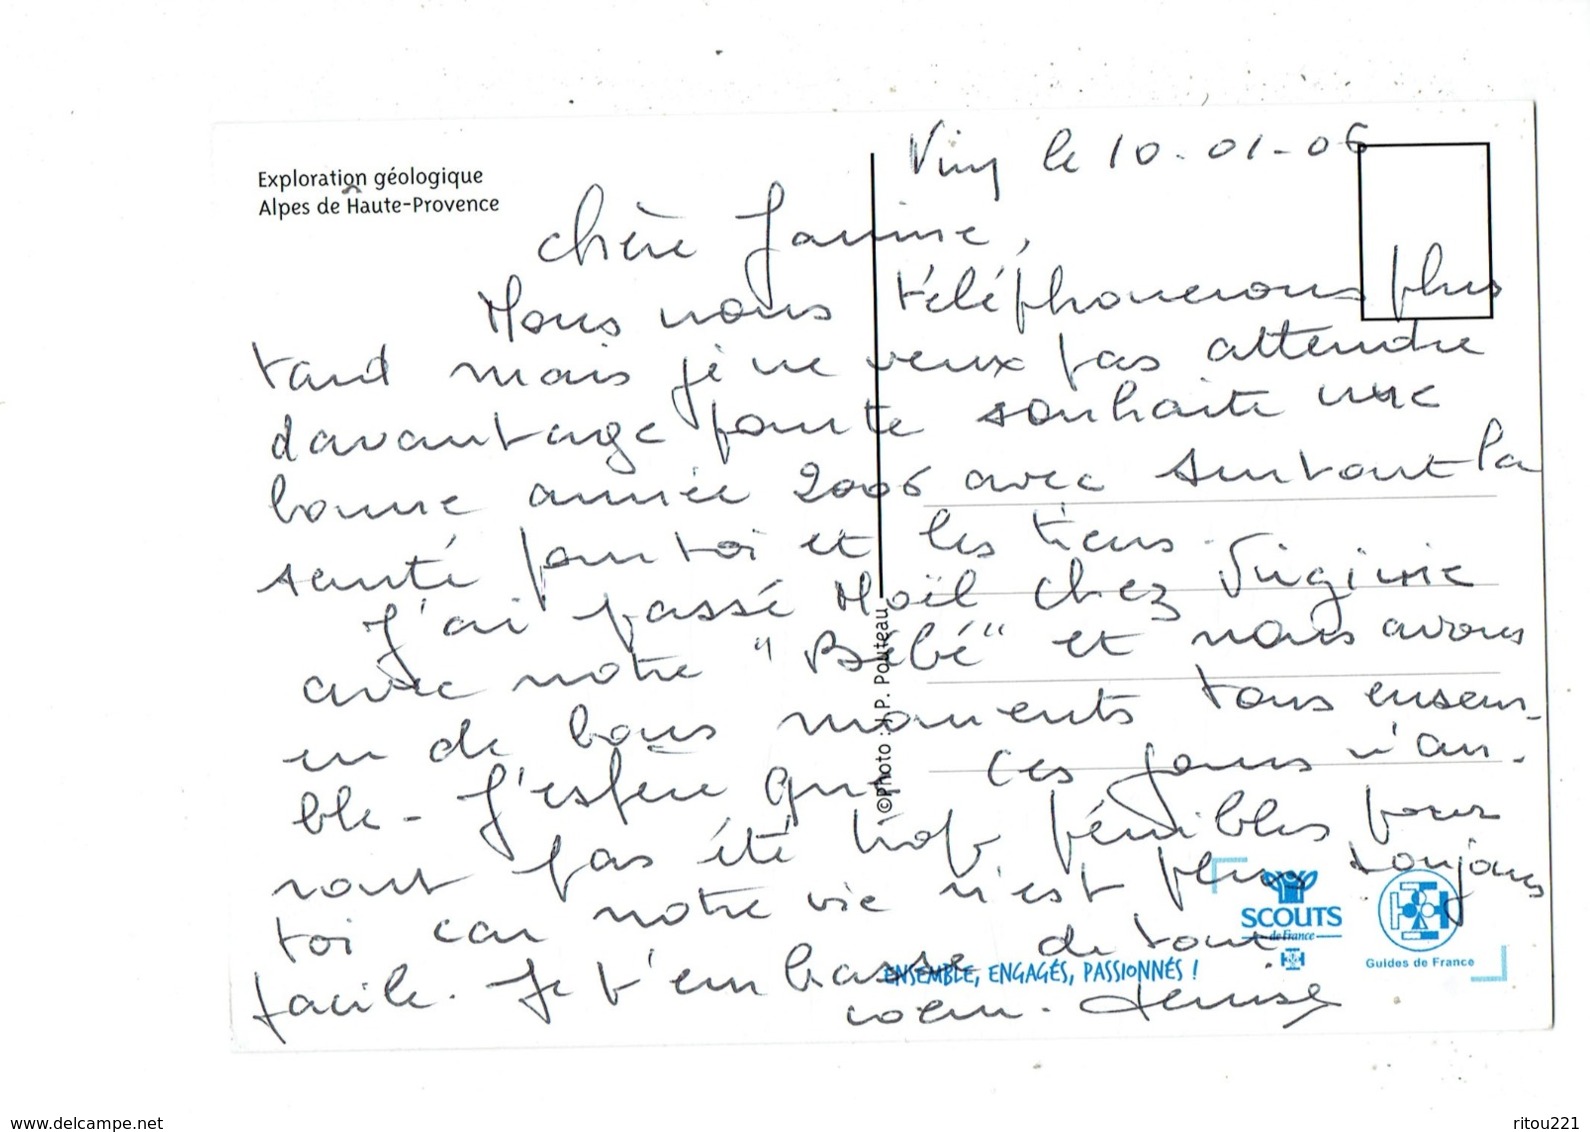 Exploration géologique
Alpes de Haute-Provence
Vinf le 10-01-06
Chère Janine,
Nous nous téléphonerons plus
tard mais je ne veux pas attendre
davantage pour te souhaite une
bonne année 2006 avec surtout la
santé pour toi et les tiens.
J'ai passé Noël chez Virginie
avec notre "Bébé" et nous avons
eu de bons moments tous ensem-
ble - J'espère que ces jours n'au-
ront pas été trop pénibles pour
toi car notre vie n'est plus toujours
facile. Je t'embrasse de tout
coeur. Denise
©Photo : J.P. Pouteau
SCOUTS
de France
Guides de France
ENSEMBLE, ENGAGÉS, PASSIONNÉS !
www.delcampe.net
ritou221